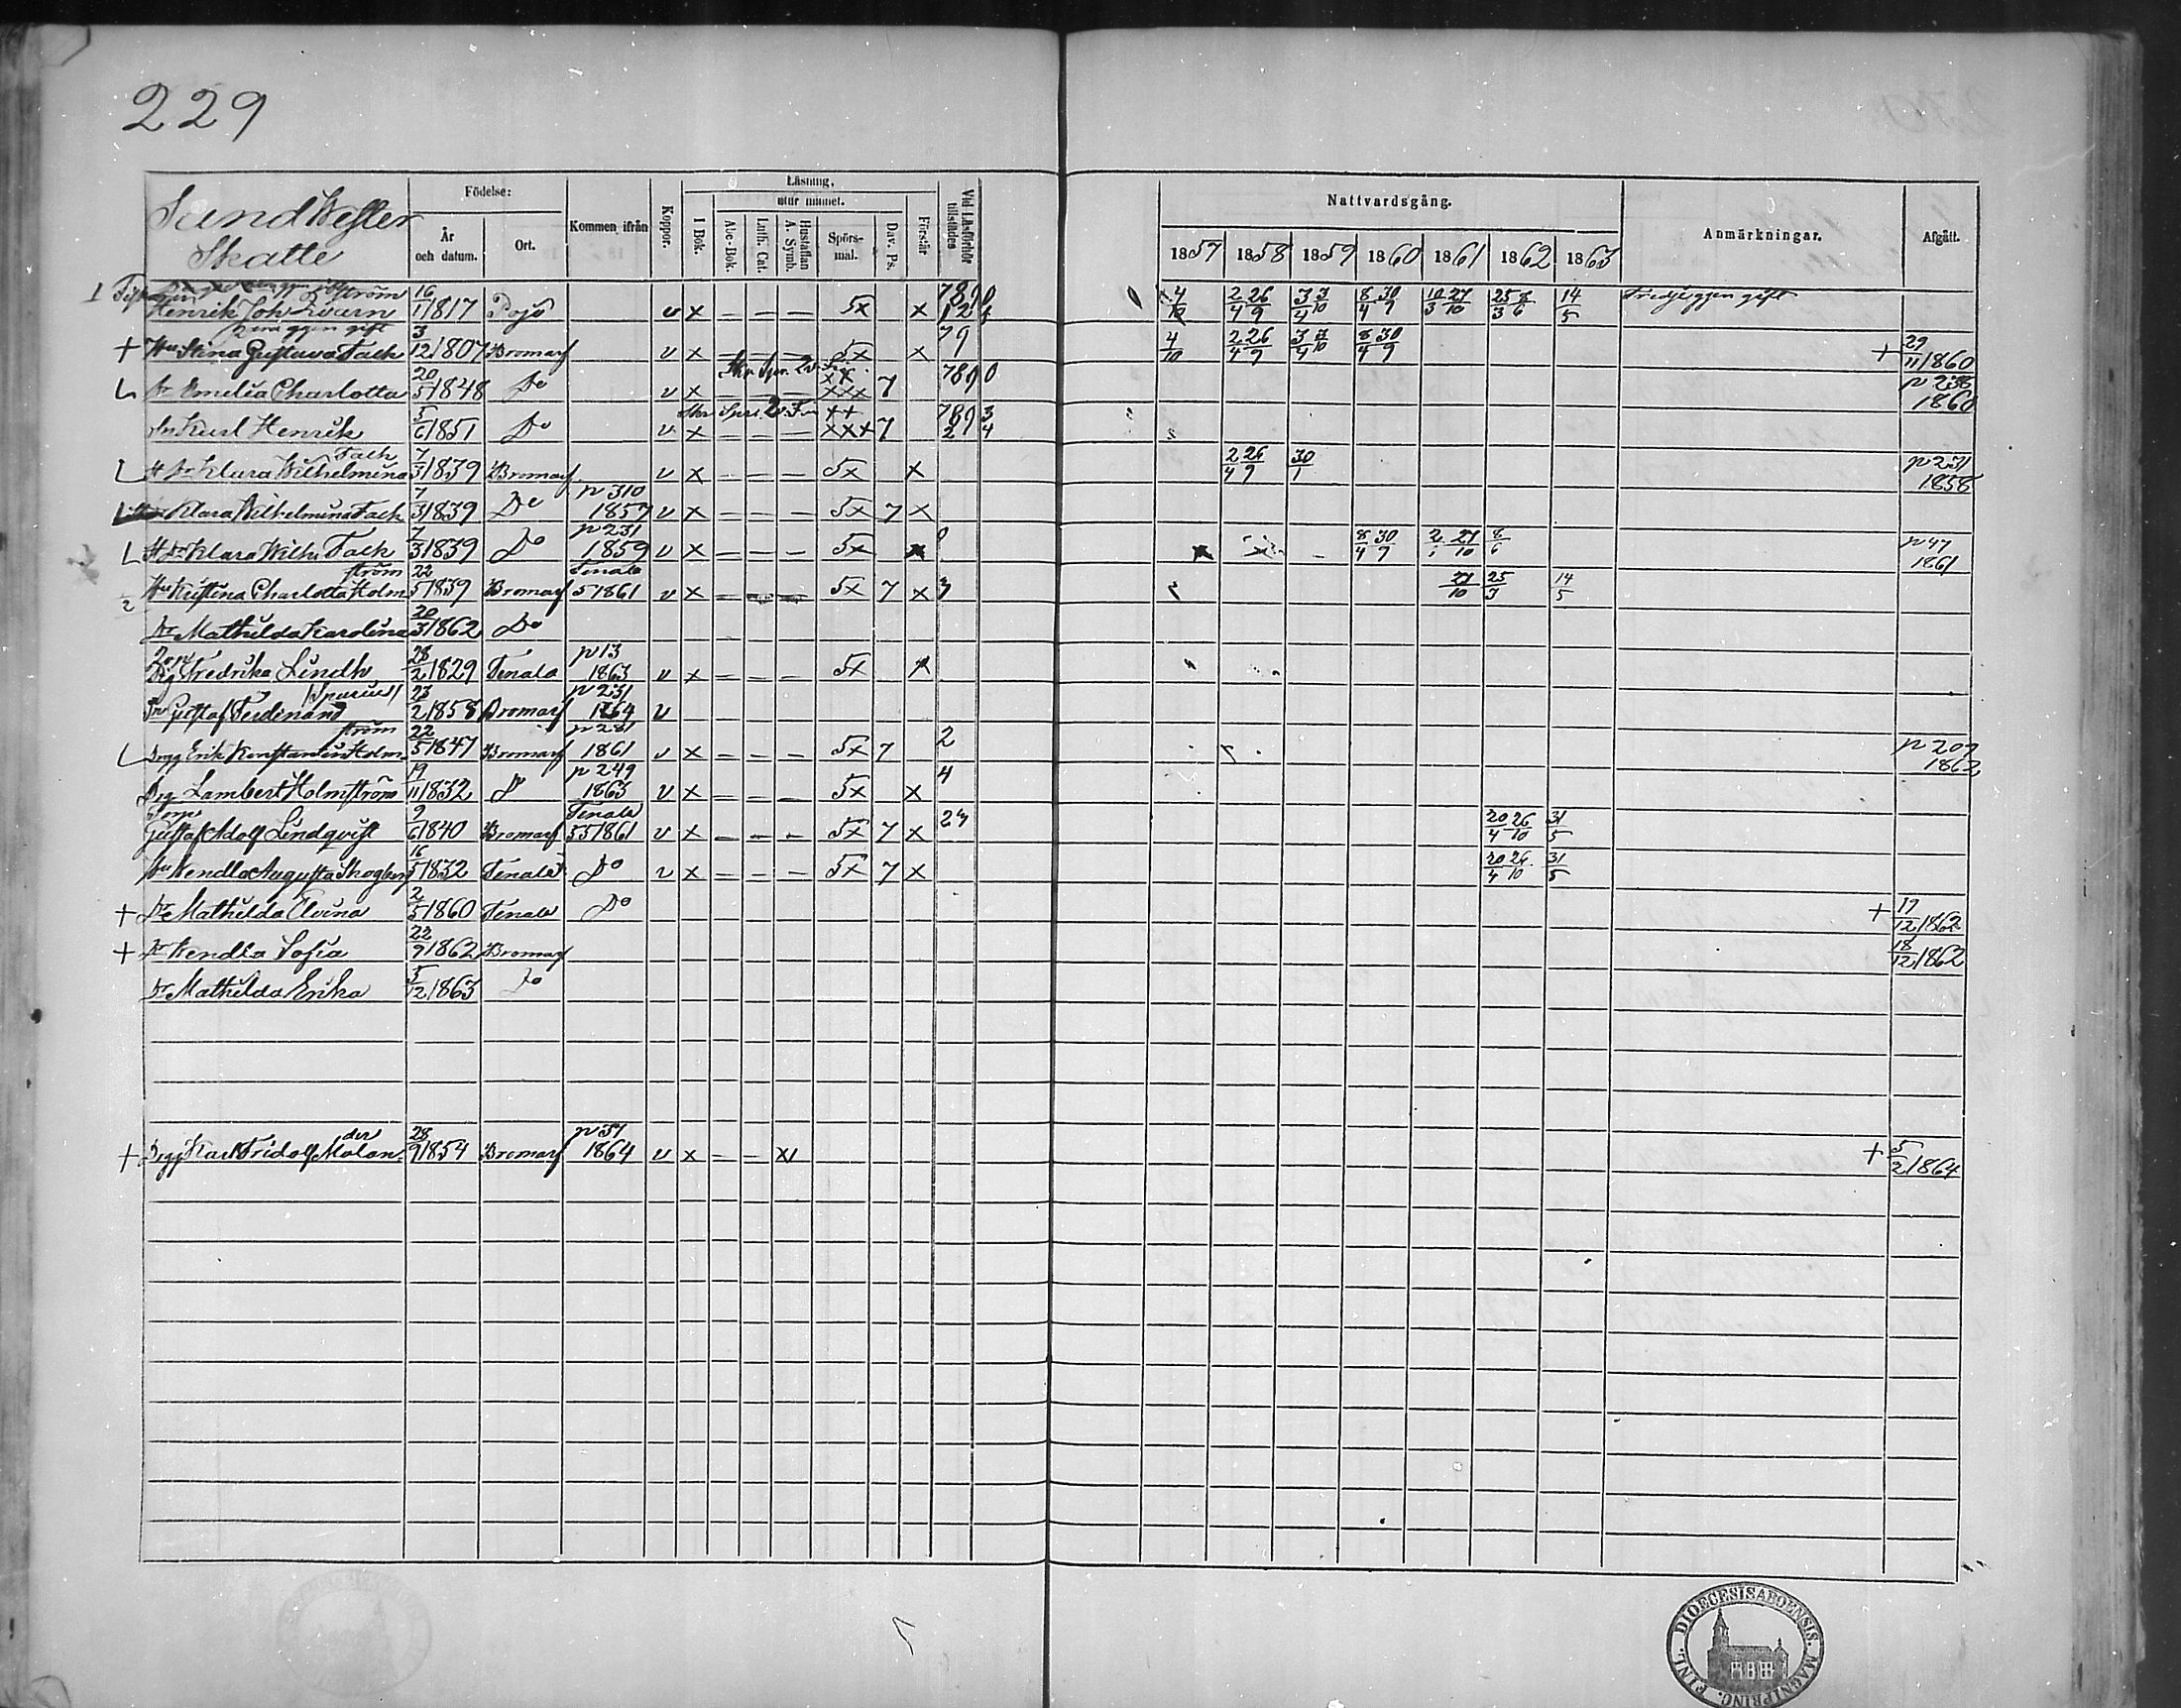 229
Sund Wester
Skatte
Födelse:
År och datum.
Ort.
Kommen ifrån
Koppor.
Läsning.
I Bok.
utur minnet.
Abc-Bok.
Luth. Cat.
Hustaflan A. Symb.
Spörs-mål.
Dav. Ps.
Förstår
Vid Läsförhör tillstädes
Nattvardsgång.
1857 1858 1859 1860 1861 1862 1863
Anmärkningar.
Afgått.
Henrik Joh 16/1 1817 Pojo v x — — — 5x x 4/10 2/4 26/9 3/4 3/10 8/4 30/9 10/3 27/10 25/3 8/6 14/5 Tredje ggen gift
2dra ggen gift
+ Hu Stina Gustava Falk 3/12 1807 Bromarf v x — — — 5x x 79 4/10 2/4 26/9 3/4 3/10 8/4 30/9 + 29/11 1860
Dr Emelia Charlotta 20/5 1848 Do v x — — — xxx 7 7890 p 238 1860
Sn Karl Henrik 5/6 1851 Do v x — — — xxx 7 789 3 2 4
Falk
H Dr Klara Wilhelmina 7/3 1839 Bromarf v x — — — 5x x 2/4 26/9 30/1 p 231 1858
Klara Wilhelmina Falk 7/3 1839 Do p 310 1857 v x — — — 5x 7 x
H Dr Klara Wilh. Falk 7/3 1839 Do p 231 1859 v x — — — 5x x 0 8/4 30/9 27/10 8/6 p 47 1861
ström
Hu Kristina Charlotta Holm 22/5 1839 Bromarf Tenala 5 1861 v x — — — 5x 7 x 3 27/10 25/3 14/5
Dr Mathilda Karolina 20/3 1862 Do
Pig Fredrika Lindh 28/2 1829 Tenala p 13 1863 v x — — — 5x x
(Spurius)
Sn Gustaf Ferdinand 23/2 1858 Bromarf p 231 1864 v
ström
Drgg Erik Konstantin Holm 22/5 1847 Bromarf p 281 1861 v x — — — 5x 7 2 p 207 1862
Drg Lambert Holmström 19/11 1832 Do p 249 1863 v x — — — 5x x 4
Torp
Gustaf Adolf Lindqvist 9/6 1840 Bromarf Tenala 1861 v x — — — 5x 7 x 23 20/4 26/10 31/5
Hu Wendla Augusta Skogberg 16/5 1832 Tenala Do v x — — — 5x 7 x 20/4 26/10 31/5
+ Dr Mathilda Elvina 2/5 1860 Tenala Do + 17/12 1862
+ Dr Wendla Sofia 22/9 1862 Bromarf 18/12 1862
Dr Mathilda Erika 5/12 1863 Do
der
+ Drgg Karl Fridolf Molan 28/9 1854 Bromarf p 51 1864 v x — — x + 5/2 1864
DIOECESIS ABOENSIS. MAGNI PRINC. FINL.